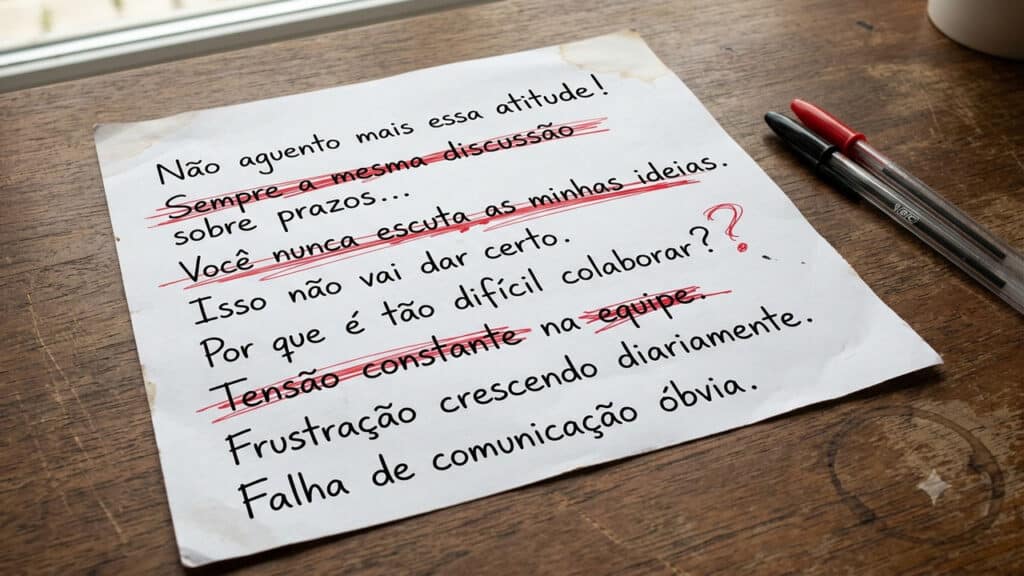 Não aguento mais essa atitude!
Sempre a mesma discussão
sobre prazos...
Você nunca escuta as minhas ideias.
Isso não vai dar certo.
Por que é tão difícil colaborar? ?
Tensão constante na equipe.
Frustração crescendo diariamente.
Falha de comunicação óbvia.